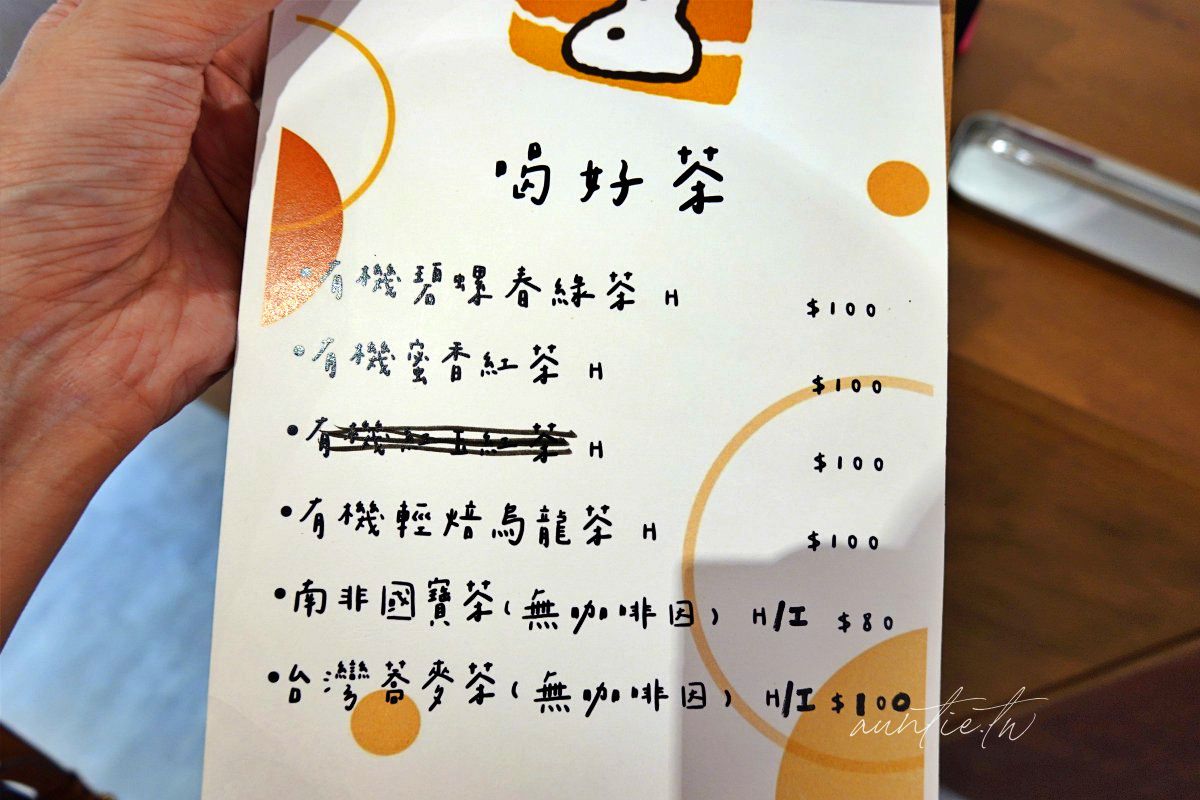 喝好茶
•有機碧螺春綠茶 H $100
•有機蜜香紅茶 H $100
•有機紅玉紅茶 H $100
•有機輕焙烏龍茶 H $100
•南非國寶茶(無咖啡因) H/I $80
•台灣蕎麥茶(無咖啡因) H/I $100
auntie.tw